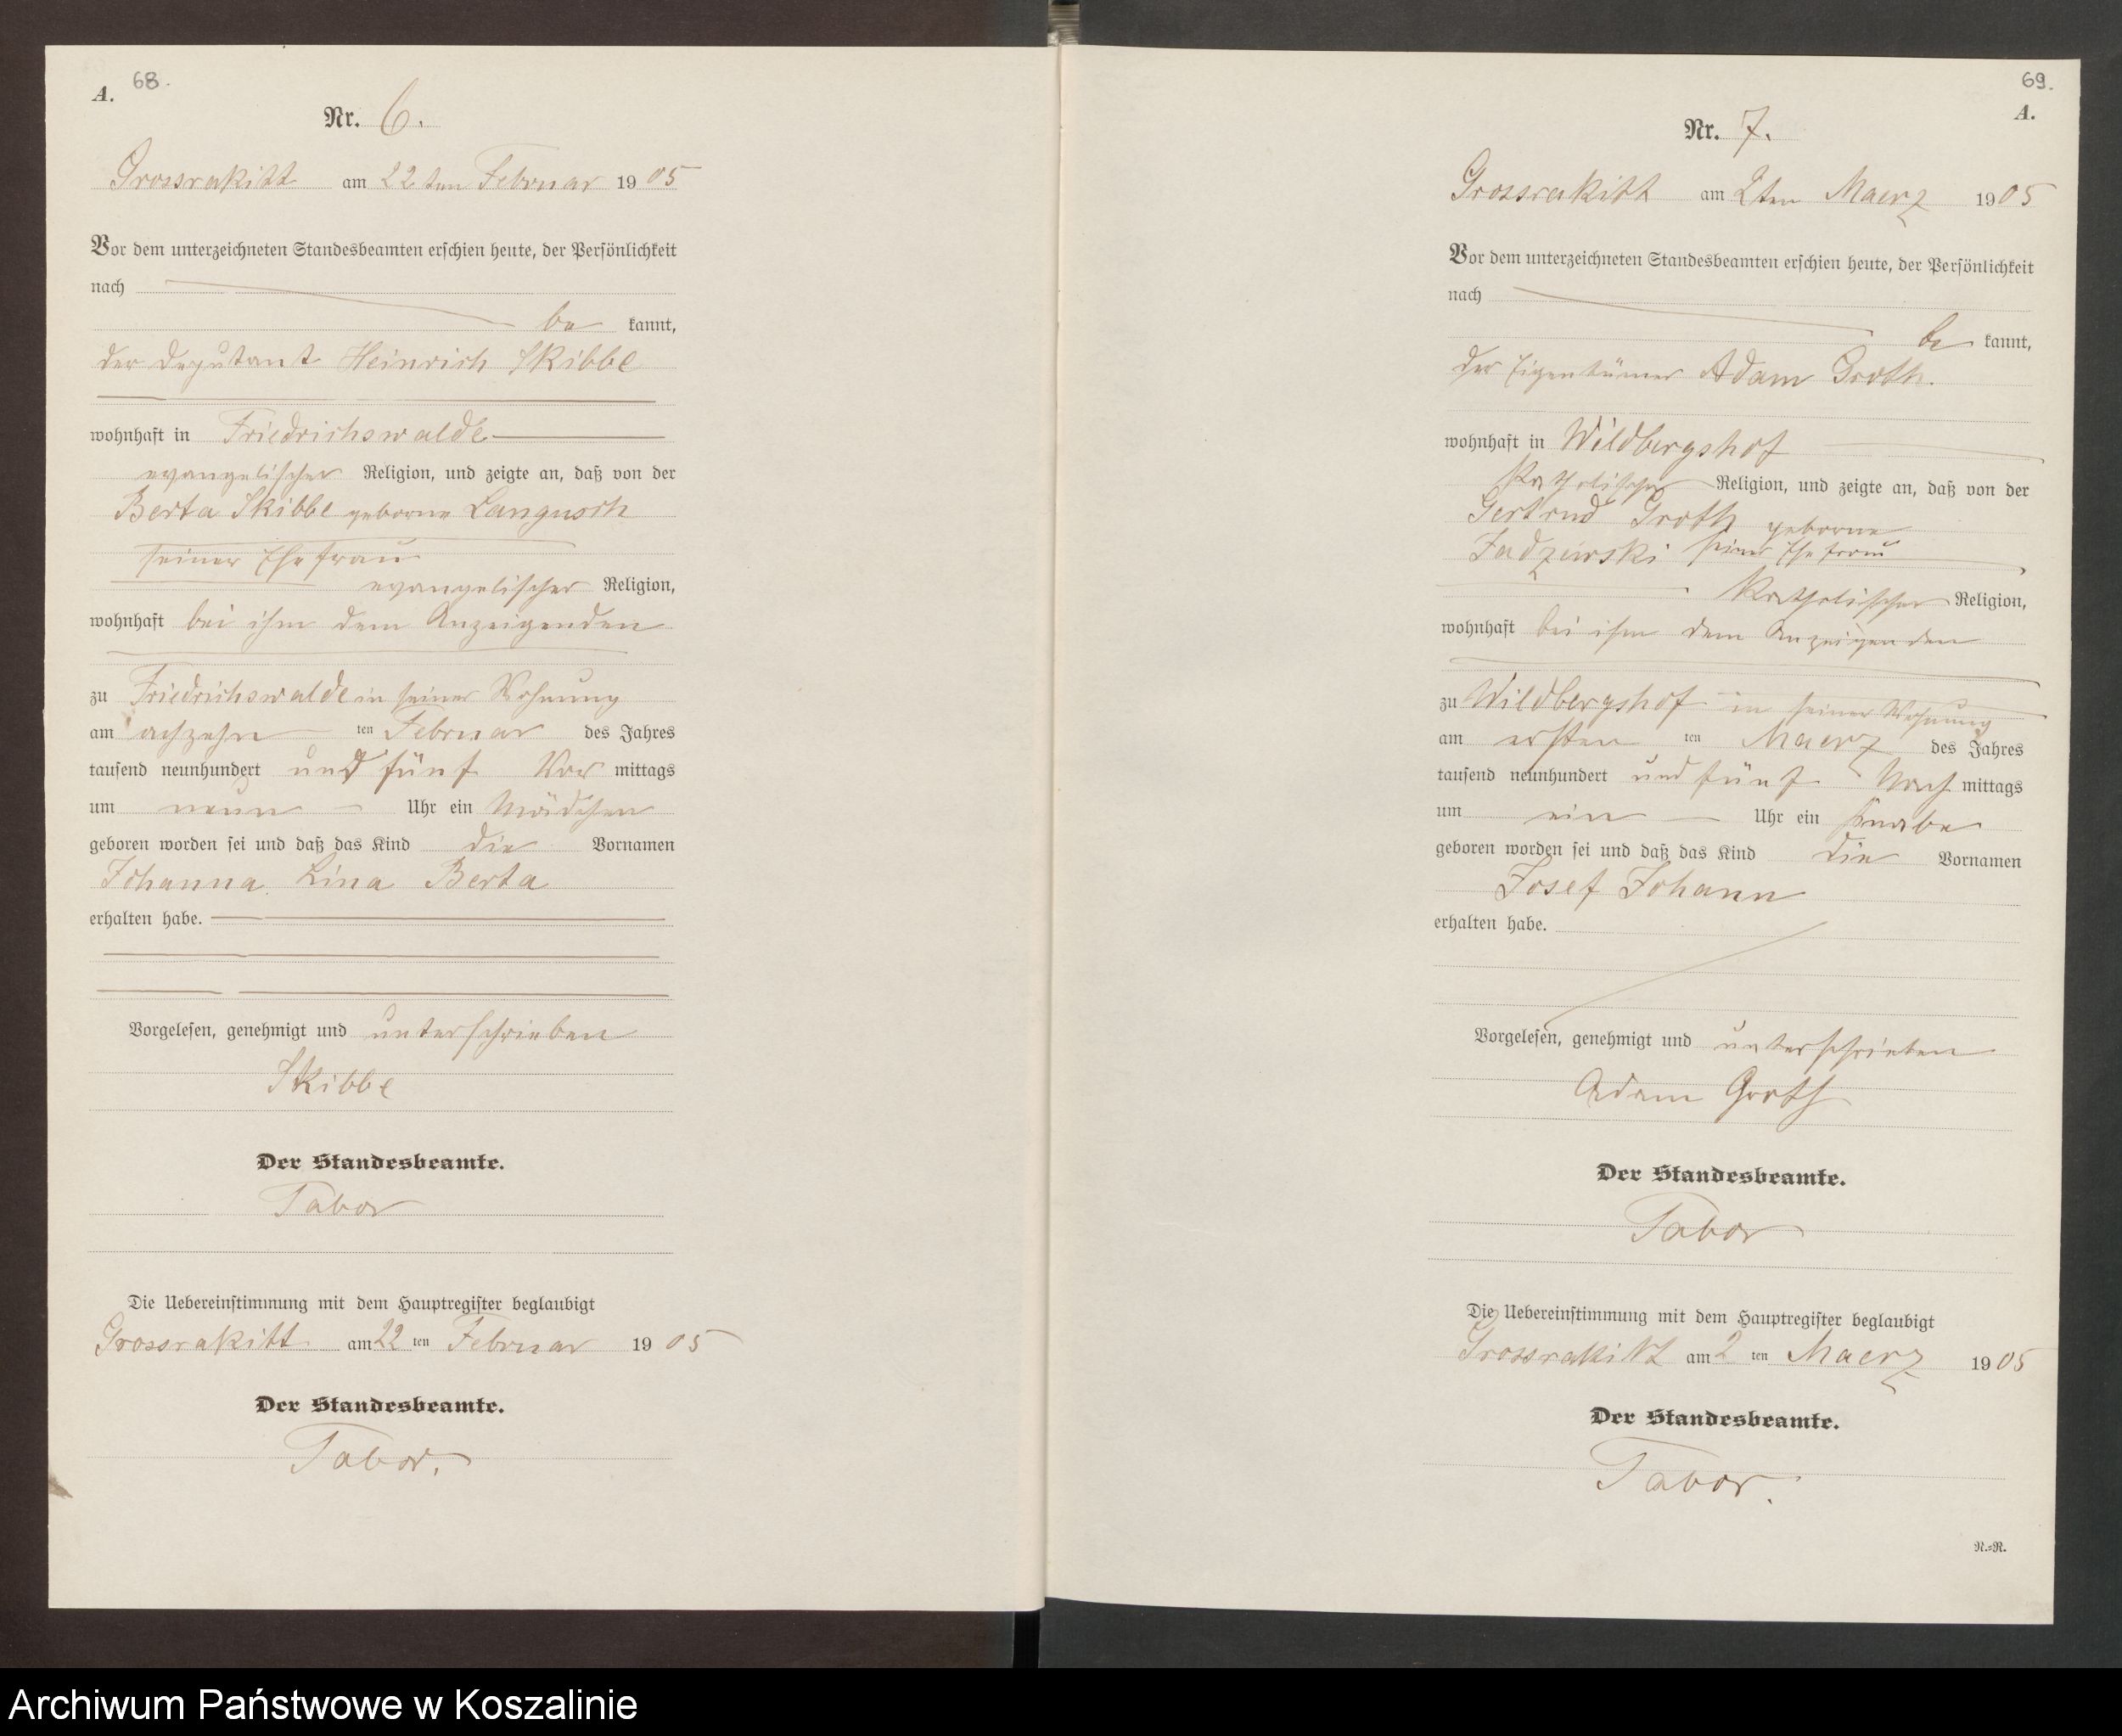 A. 68.
Nr. 6.
Grossrakitt am 22ten Februar 1905
Vor dem unterzeichneten Standesbeamten erschien heute, der Persönlichkeit
nach
be kannt,
der Deputant Heinrich Skibbe
wohnhaft in Friedrichswalde
evangelischer Religion, und zeigte an, daß von der
Berta Skibbe geborne Langusch
seiner Ehefrau
evangelischer Religion,
wohnhaft bei ihm dem Anzeigenden
zu Friedrichswalde in seiner Wohnung
am achzehn ten Februar des Jahres
tausend neunhundert und fünf Vor mittags
um neun Uhr ein Mädchen
geboren worden sei und daß das Kind die Vornamen
Johanna Lina Berta
erhalten habe.
Vorgelesen, genehmigt und unterschrieben
Skibbe
Der Standesbeamte.
Tabor
Die Uebereinstimmung mit dem Hauptregister beglaubigt
Grossrakitt am 22 ten Februar 1905
Der Standesbeamte.
Tabor.
69.
A.
Nr. 7.
Grossrakitt am 2ten Maerz 1905
Vor dem unterzeichneten Standesbeamten erschien heute, der Persönlichkeit
nach
be kannt,
der Eigentümer Adam Groth.
wohnhaft in Wildbergshof
Katholischer Religion, und zeigte an, daß von der
Gertrud Groth geborne
Jadzewski seiner Ehefrau
Katholischer Religion,
wohnhaft bei ihm dem Anzeigenden
zu Wildbergshof in seiner Wohnung
am ersten ten Maerz des Jahres
tausend neunhundert und fünf Nach mittags
um ein Uhr ein Knabe
geboren worden sei und daß das Kind die Vornamen
Josef Johann
erhalten habe.
Vorgelesen, genehmigt und unterschrieben
Adam Groth
Der Standesbeamte.
Tabor
Die Uebereinstimmung mit dem Hauptregister beglaubigt
Grossrakitt am 2 ten Maerz 1905
Der Standesbeamte.
Tabor.
R.=R.
Archiwum Państwowe w Koszalinie